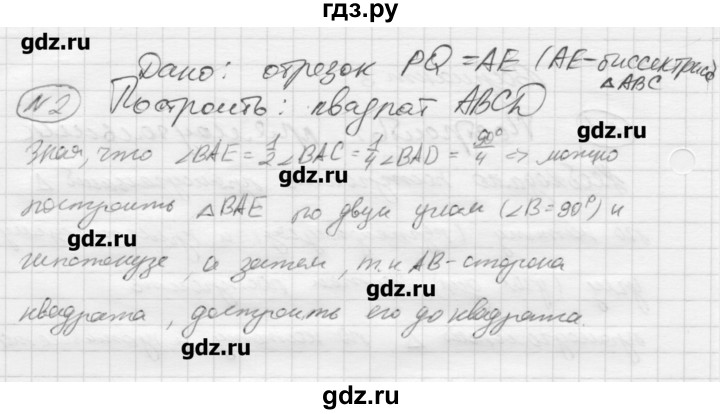 гдз.ру
gdz.ru
Дано: отрезок PQ = AE (AE-биссектриса
△ABC
№2
Построить: квадрат ABCD
gdz.ru
Зная, что ∠BAE = 1/2 ∠BAC = 1/4 ∠BAD = 90°/4 ⇒ можно
gdz.ru
построить △BAE по двум углам (∠B = 90°) и
gdz.ru
гипотенузе, а затем, т.к AB-сторона
gdz.ru
квадрата, достроить его до квадрата.
gdz.ru
gdz.ru